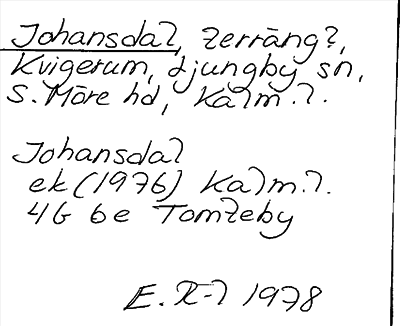 Johansdal, terrängl.,
Kvigerum, Ljungby sn,
S. Möre hd, Kalm. l.
Johansdal
ek (1976) Kalm. l.
4G 6e Tomteby
E. K-l 1978